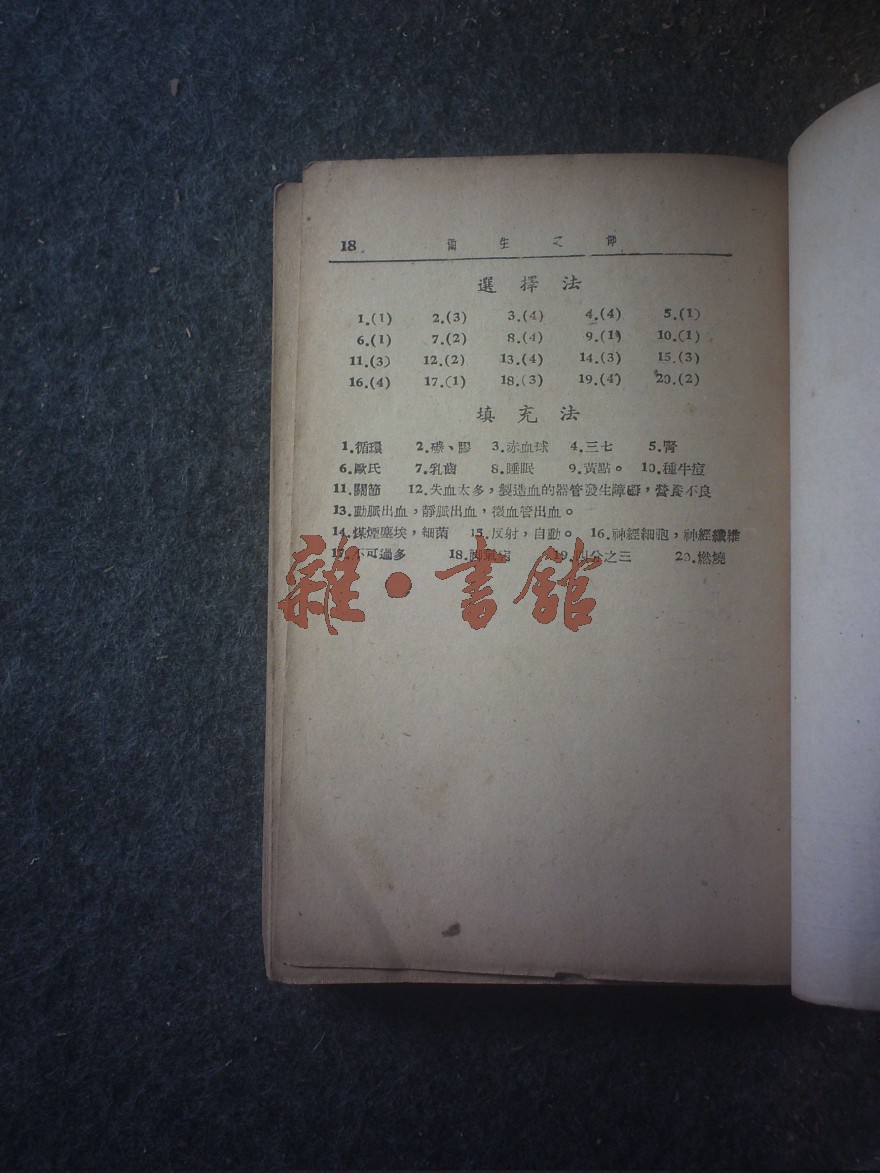 18 衞 生 之 部
選 擇 法
1.(1) 2.(3) 3.(4) 4.(4) 5.(1)
6.(1) 7.(2) 8.(4) 9.(1) 10.(1)
11.(3) 12.(2) 13.(4) 14.(3) 15.(3)
16.(4) 17.(1) 18.(3) 19.(4) 20.(2)
填 充 法
1.循環 2.礦、膠 3.赤血球 4.三七 5.腎
6.歐氏 7.乳齒 8.睡眠 9.黃點。 10.種牛痘
11.關節 12.失血太多，製造血的器管發生障礙，營養不良
13.動脈出血，靜脈出血，微血管出血。
14.煤煙塵埃，細菌 15.反射，自動。 16.神經細胞，神經纖維
17.不可過多 18.脚氣病 19.四分之三 20.燃燒
雜·書舘